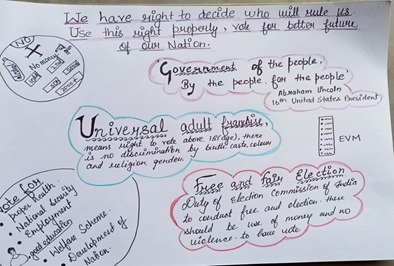 We have right to decide who will rule us.
Use this right properly, vote for better future
of our Nation.
NO
No money
'Government of the people,
By the people, for the people'
Abraham Lincoln
16th United States President
Universal adult franchise,
means right to vote above 18(age), there
is no discrimination by birth, caste, colour
and religion gender.
EVM
Free and Fair Election
Duty of Election Commission of India
to conduct free and election. there
should be use of money and no
violence to have vote.
Vote for
Proper Health
National Security
Employment
good education
Welfare Scheme
Development of
Nation